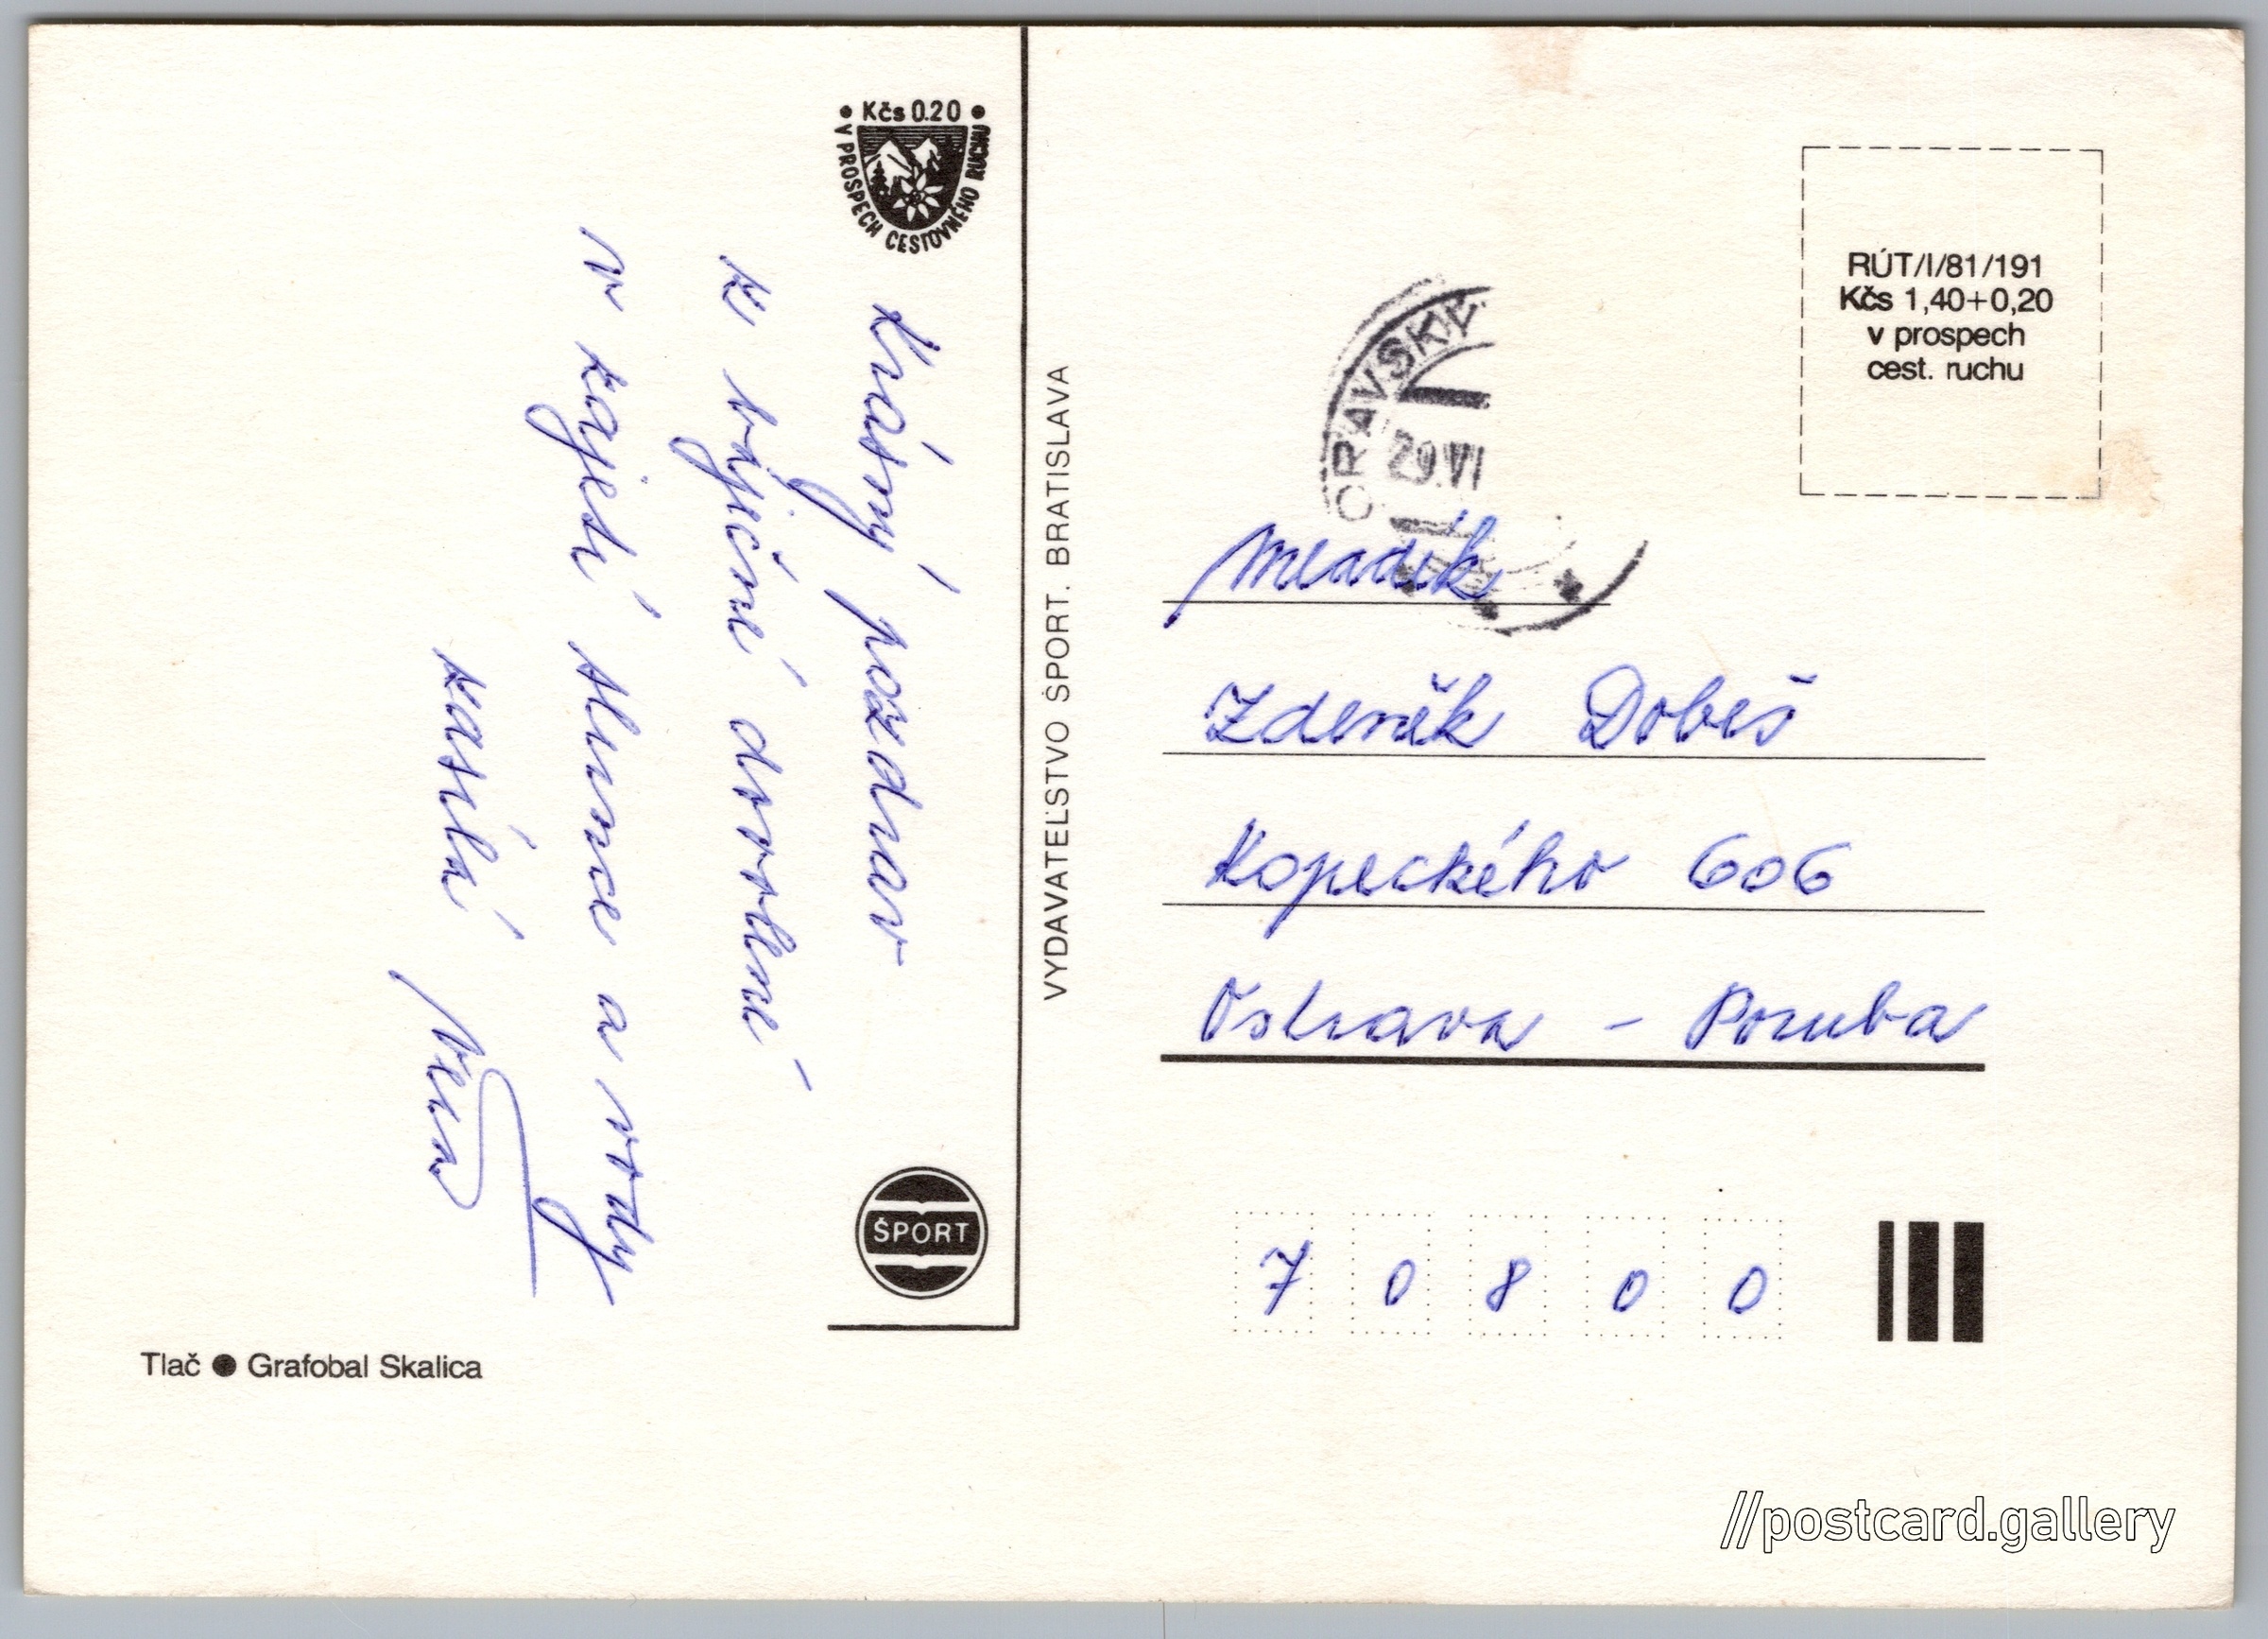 • Kčs 0.20 •
V PROSPECH CESTOVNÉHO RUCHU
Krásný pozdrav
z báječné dovolené
v zajetí slunce a vody
zasílá Věra
ŠPORT
Tlač ● Grafobal Skalica
VYDAVATEĽSTVO ŠPORT. BRATISLAVA
RÚT/I/81/191
Kčs 1,40+0,20
v prospech
cest. ruchu
ORAVSKÝ
29.VI
Mladík
Zdeněk Dobeš
Kopeckého 606
Ostrava - Poruba
70800
//postcard.gallery